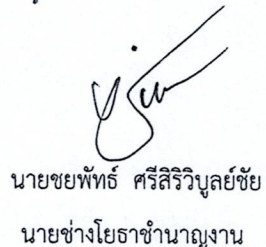 นายชยพัทธ์ ศรีสิริวิบูลย์ชัย
นายช่างโยธาชำนาญงาน